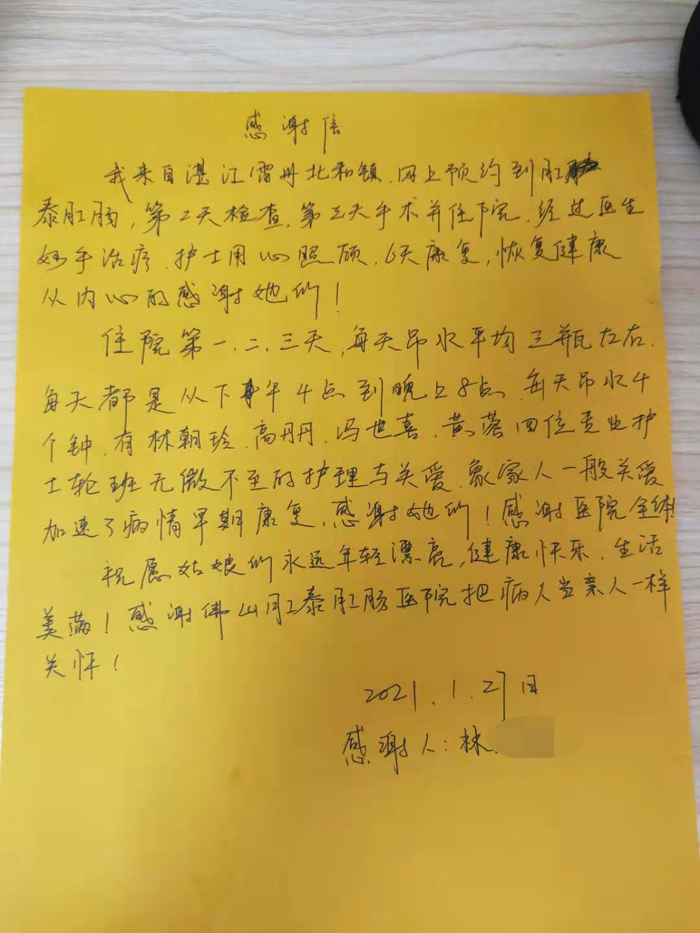 感谢信
我来自湛江雷州北和镇,网上预约到肛
泰肛肠,第2天检查,第三天手术并住院,经过医生
妙手治疗,护士用心照顾,6天康复,恢复健康
从内心的感谢她们!
住院第一、二、三天,每天吊水平均三瓶左右.
每天都是从下午4点到晚上8点,每天吊水4
个钟,有林朝玲,高丹丹,冯世喜,黄蓉四位专业护
士轮班无微不至的护理与关爱,象家人一般关爱
加速了病情早期康复,感谢她们!感谢医院全体!
祝愿姑娘们永远年轻漂亮,健康快乐,生活
美满!感谢佛山肛泰肛肠医院把病人当亲人一样
关怀!
2021.1.27日
感谢人:林